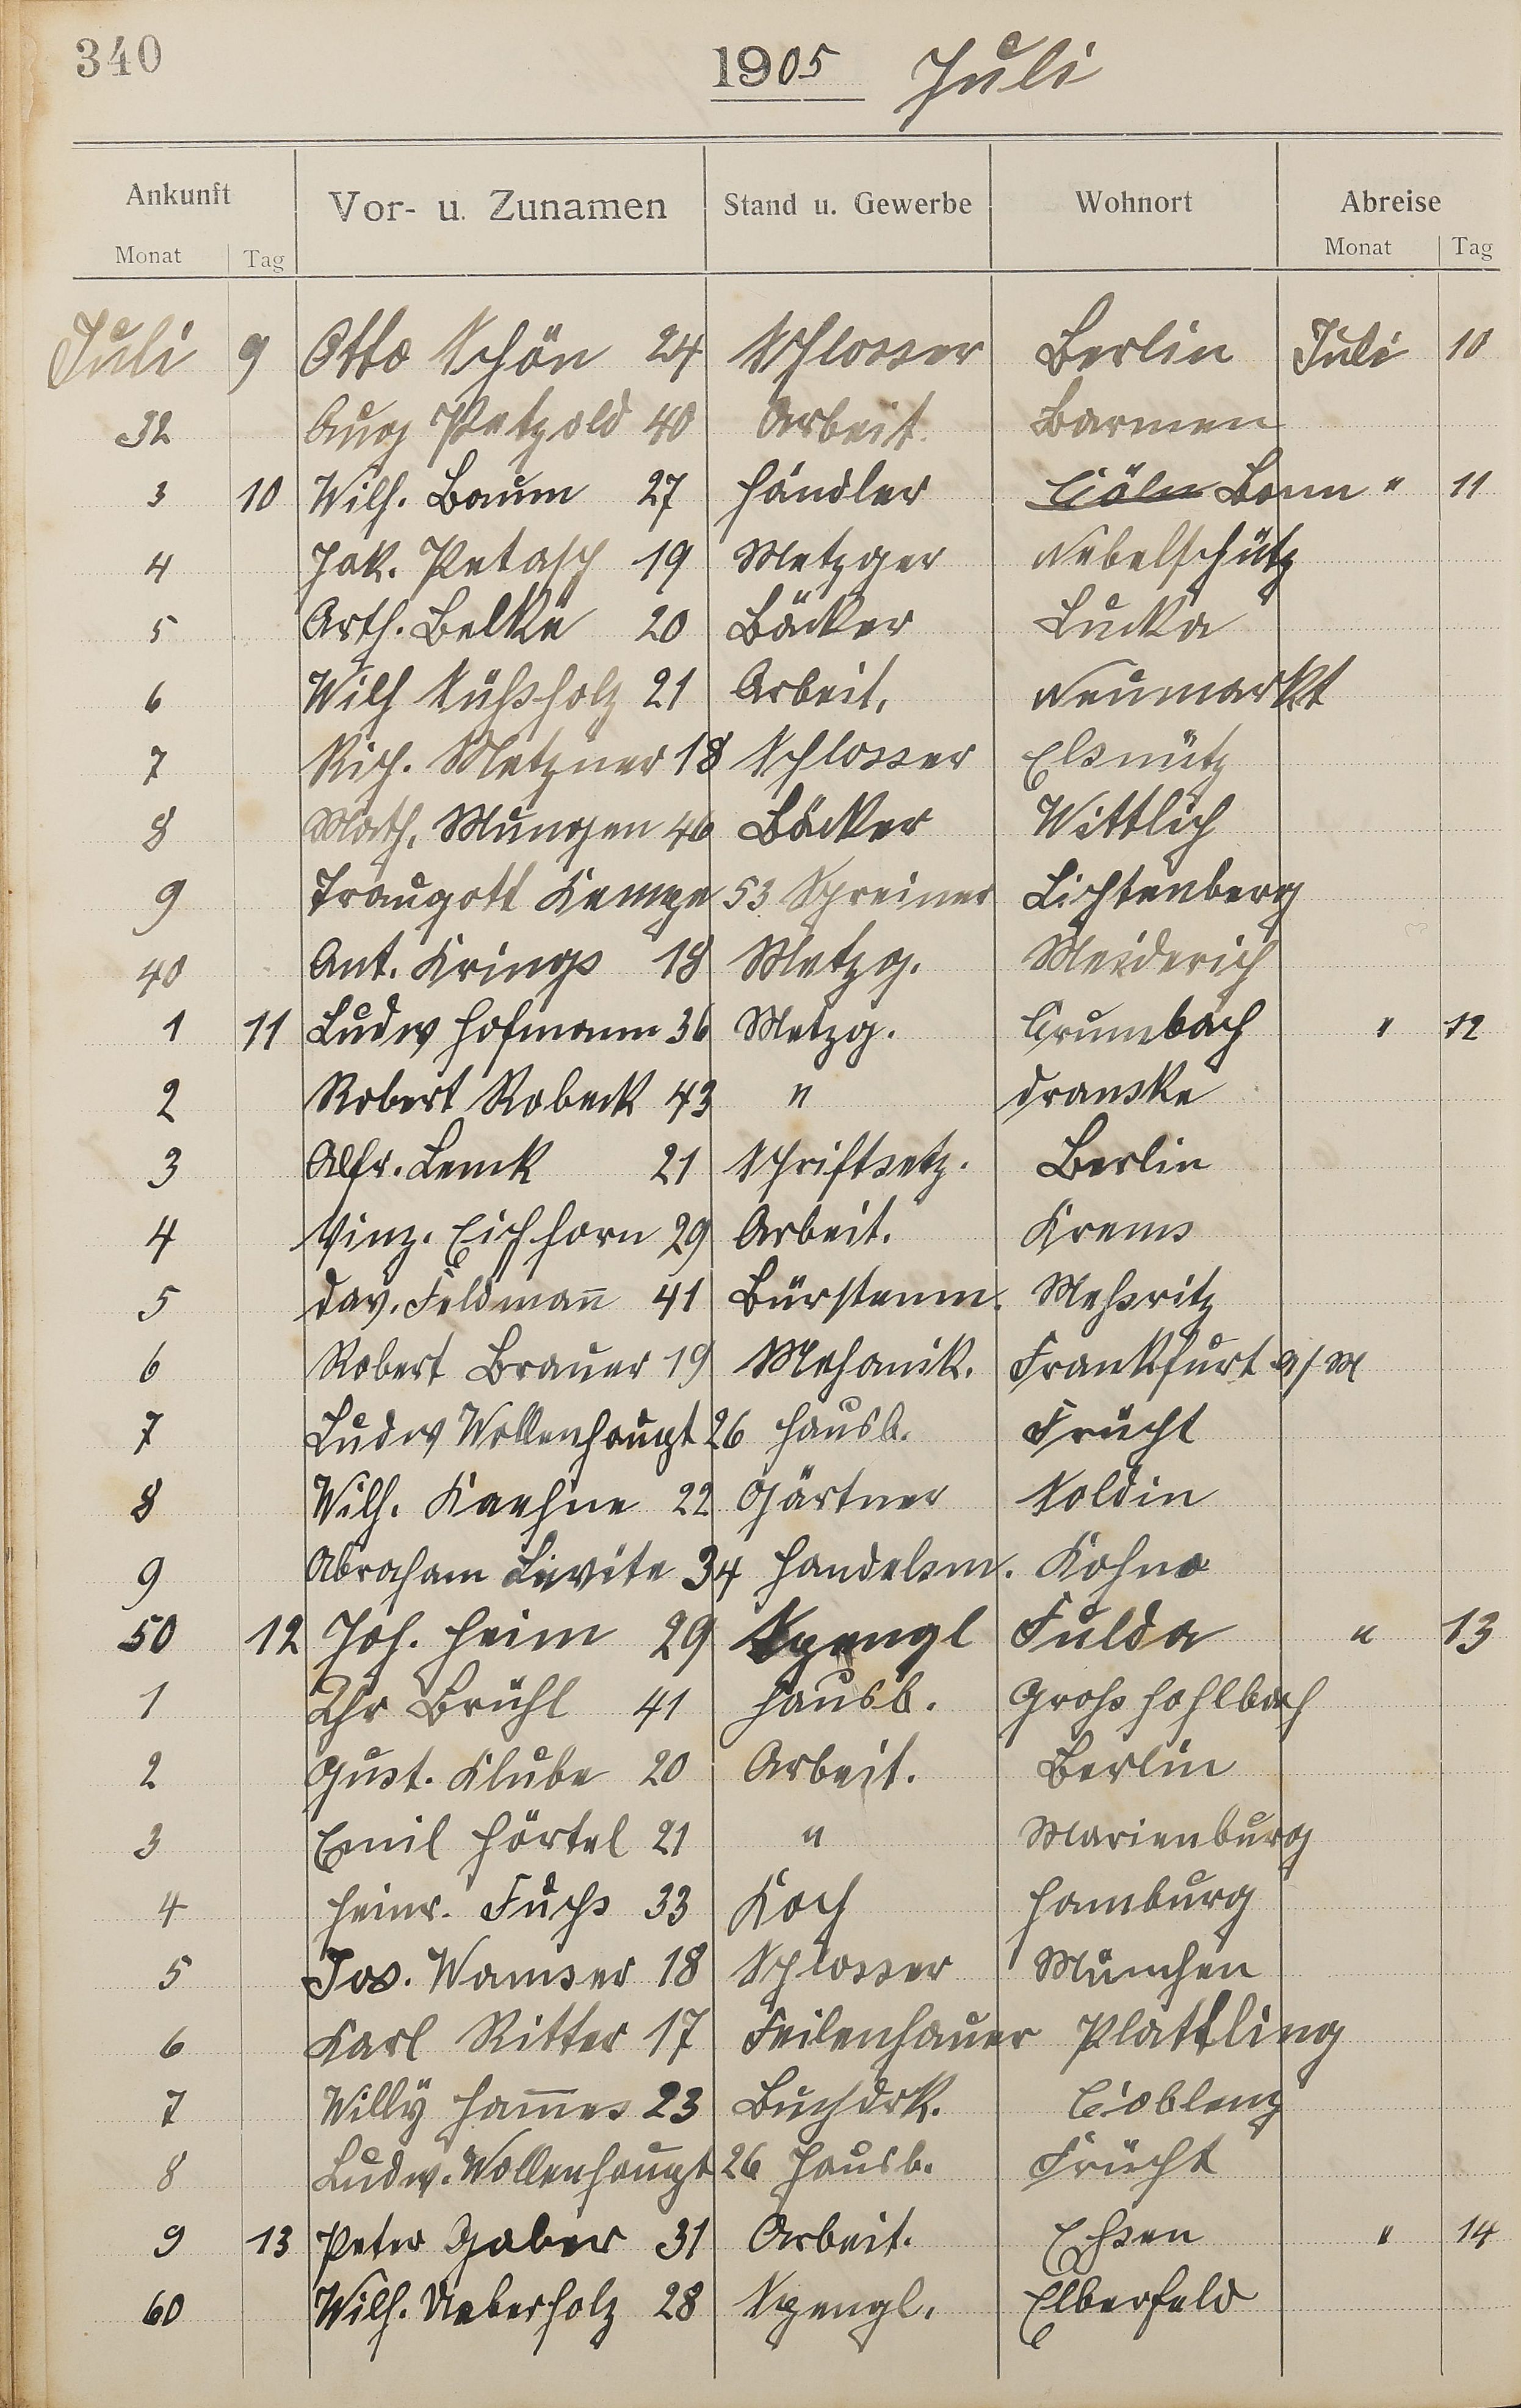 340
1905 Juli
Ankunft Vor- u. Zunamen Stand u. Gewerbe Wohnort Abreise
Monat Tag Monat Tag
Juli 9 Otto Schön 24 Schlosser Berlin Juli 10
32 Aug Petzold 40 Arbeit. Barmen
3 10 Wilh. Baum 27 Händler Cöln Bonn " 11
4 Jak. Petasch 19 Metzger Nebelschütz
5 Arth. Belke 20 Bäcker Lucka
6 Wilh Süßholz 21 Arbeit. Neumarkt
7 Rich. Metzner 18 Schlosser Elsnütz
8 Math. Mungen 46 Bäcker Wittlich
9 Traugott Kempe 53 Schreiner Lichtenberg
40 Ant. Krings 18 Metzg. Meiderich
1 11 Ludw Hofmann 36 Metzg. Crumbach " 12
2 Robert Robeck 43 " Dranske
3 Alfr. Lenck 21 Schriftsetz. Berlin
4 Vinz. Eichhorn 29 Arbeit. Krems
5 Dav. Feldmann 41 Bürstenm. Meßritz
6 Robert Brauer 19 Mechanik. Frankfurt a/M
7 Ludw Wollenhaupt 26 Hausb. Frücht
8 Wilh. Kaehne 22 Gärtner Soldin
9 Abraham Livite 34 Handelsm. Kohno
50 12 Joh. Heim 29 Spengl Fulda " 13
1 Chr Brühl 41 Hausb. Großhohlbach
2 Gust. Klube 20 Arbeit. Berlin
3 Emil Hörtel 21 " Marienburg
4 Heinr. Fuchs 33 Koch Hamburg
5 Jos. Wamser 18 Schlosser München
6 Karl Ritter 17 Feilenhauer Plattling
7 Willÿ Ham̅es 23 Buchdrk. Coblenz
8 Ludw. Wollenhaupt 26 Hausb. Frücht
9 13 Peter Gaber 31 Arbeit. Eßen " 14
60 Wilh. Ueberholz 28 Spengl. Elberfeld